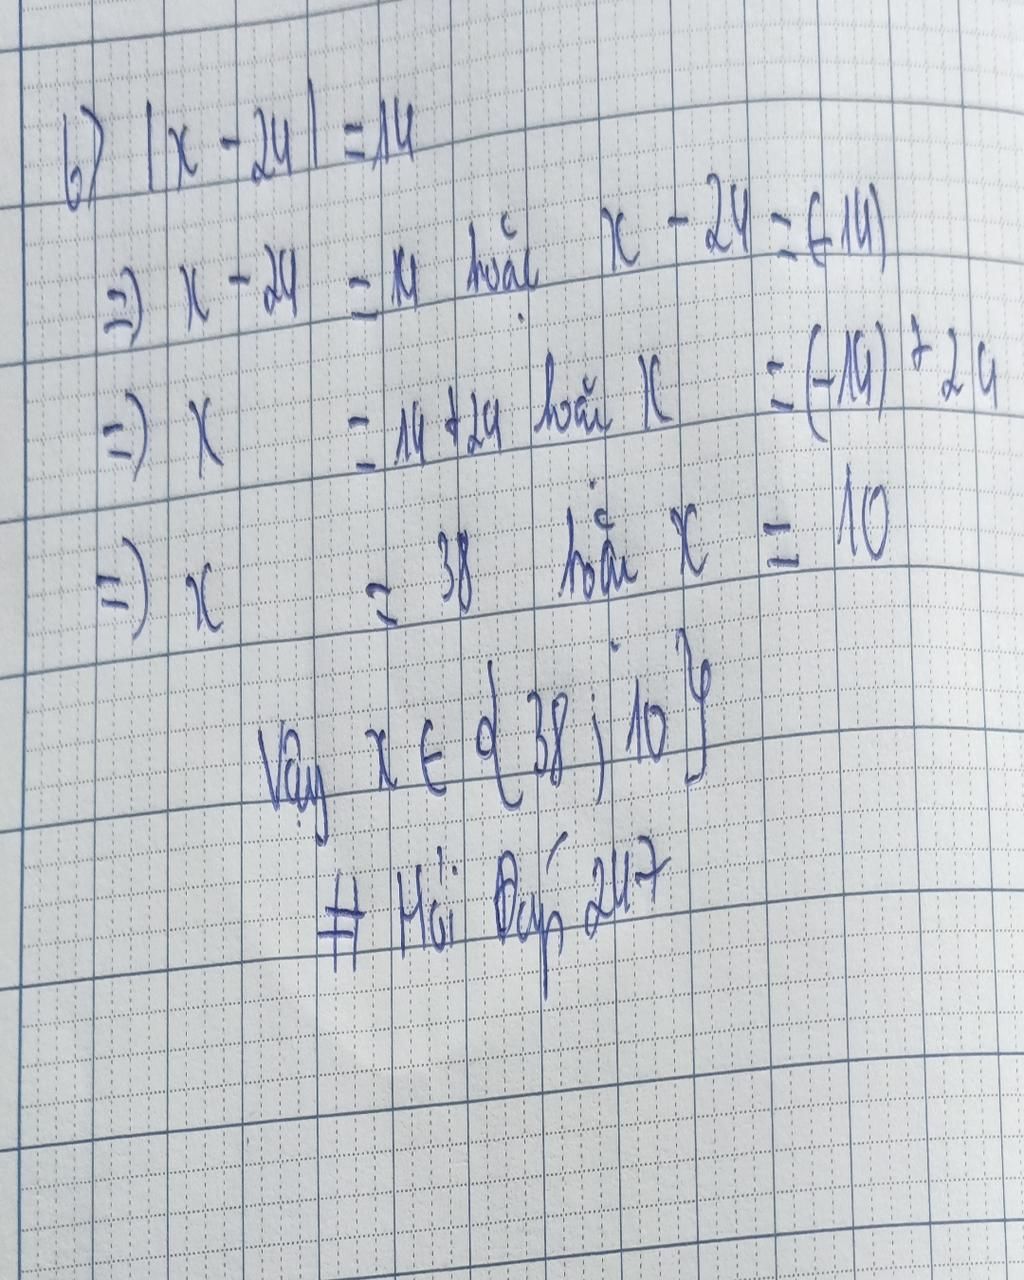 b) |x - 24| = 14
=) x - 24 = 14 hoặc x - 24 = (-14)
=) x = 14 + 24 hoặc x = (-14) + 24
=) x = 38 hoặc x = 10
Vậy x ∈ {38 ; 10}
# Hỏi Đáp 247